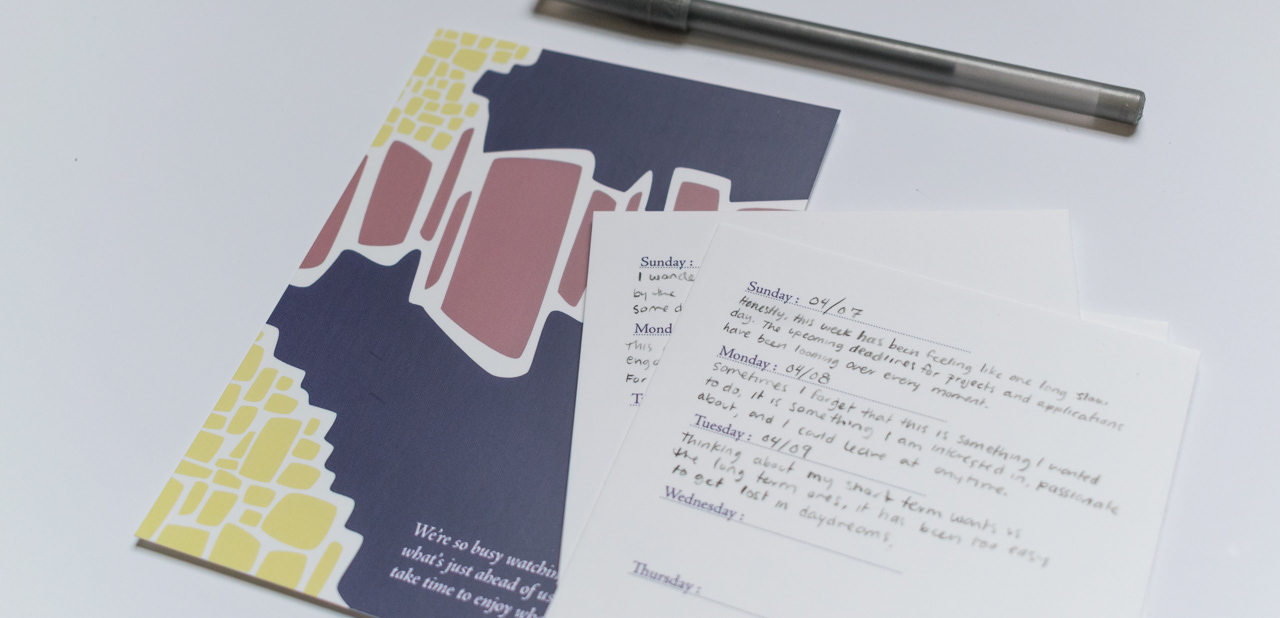 We're so busy watchin
what's just ahead of us
take time to enjoy wh
Sunday :
I wande
by the
some d
Mond
This
enga
For
T
Sunday : 04/07
Honestly, this week has been feeling like one long slow
day. The upcoming deadlines for projects and applications
have been looming over every moment.
Monday : 04/08
Sometimes I forget that this is something I wanted
to do, it is something I am interested in, passionate
about, and I could leave at anytime.
Tuesday : 04/09
Thinking about my short term wants vs
the long term ones, it has been too easy
to get lost in daydreams.
Wednesday :
Thursday :